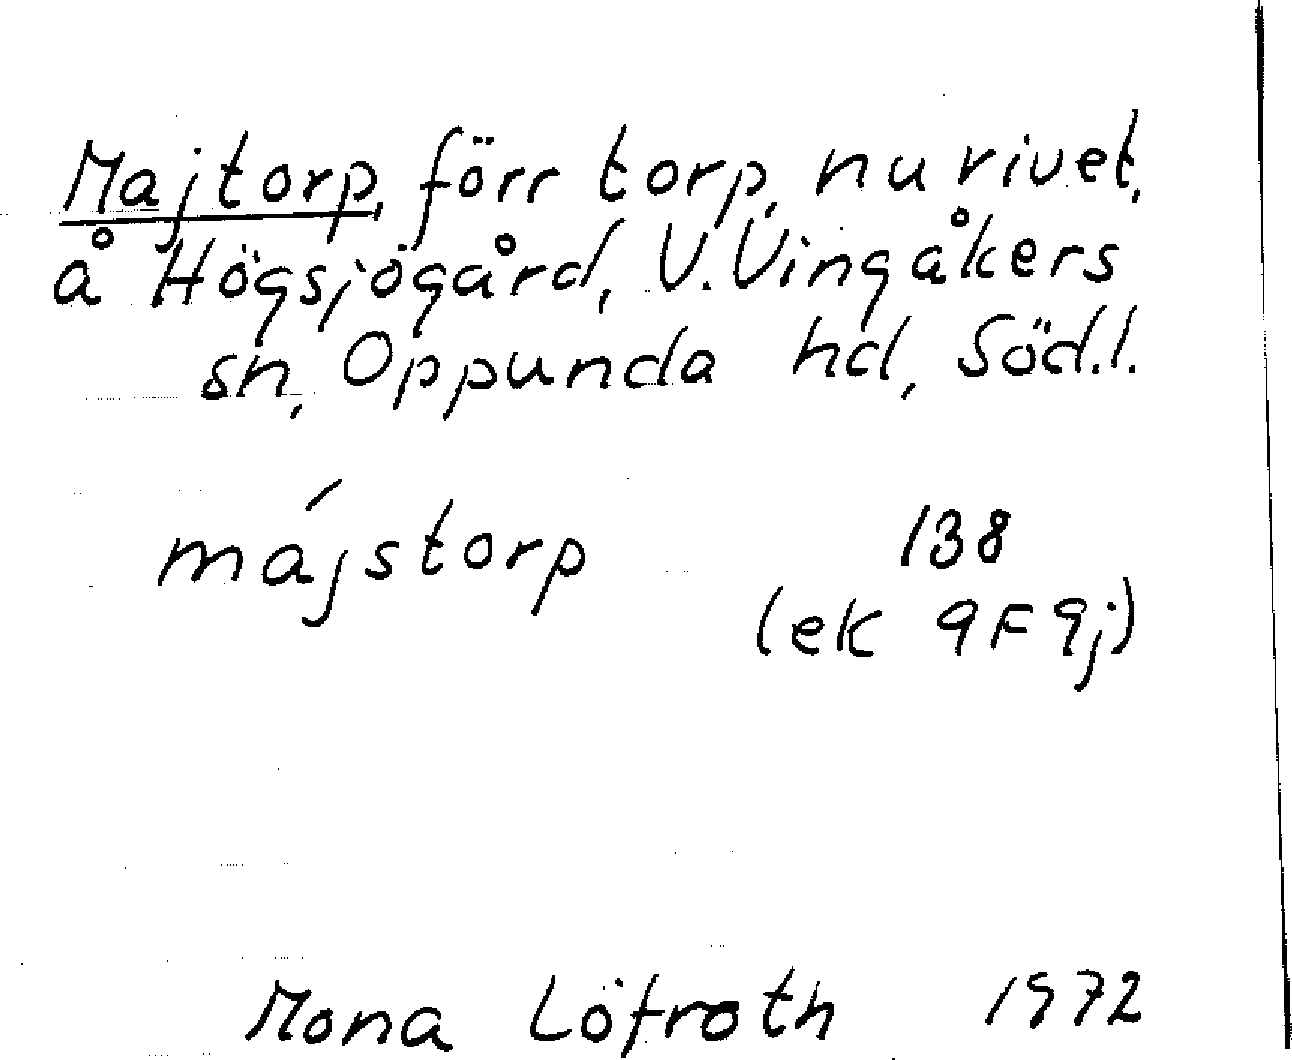 Majtorp, förr torp, nu rivet,
å Högsjögård, V. Vingåkers
sn, Oppunda hd, Söd.l.
májstorp 138
(ek 9F9j)
Mona Löfroth 1972